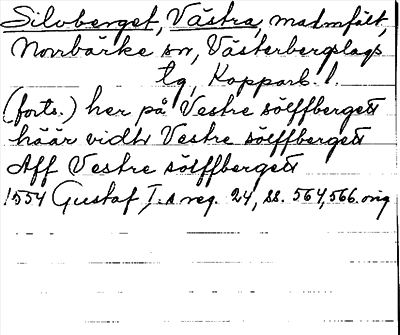 Silvberget, Västra, malmfält,
Norrbärke sn, Västerbergslags
tg, Kopparb. l.
(forts.) her på Vestre sölffbergett
häär vidh Vestre sölffbergett
Aff Vestre sölffbergett
1554 Gustaf I.s reg. 24, ss. 564, 566. orig